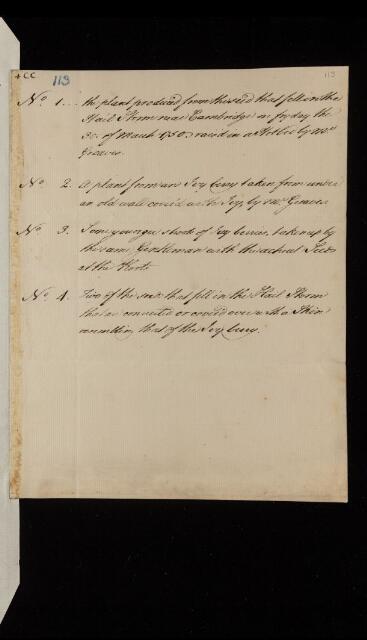 +CC
113
113
No. 1... the plant produced from the seed that fell in the
Hail Storm near Cambridge on fryday the
30. of March 1750. raised in a Hotbed by Mr.
Graves.
No. 2. A plant from an Ivy berry taken from under
an old wall cover'd with Ivy, by Mr. Graves
No. 3. Some younger stock of Ivy berries taken up by
the same Gentleman with the actual Seed
at the Roots
No. 4. Two of the that fell in the Hail Storm
that are or cover'd over with a Skin
resembling that of the Ivy berry.